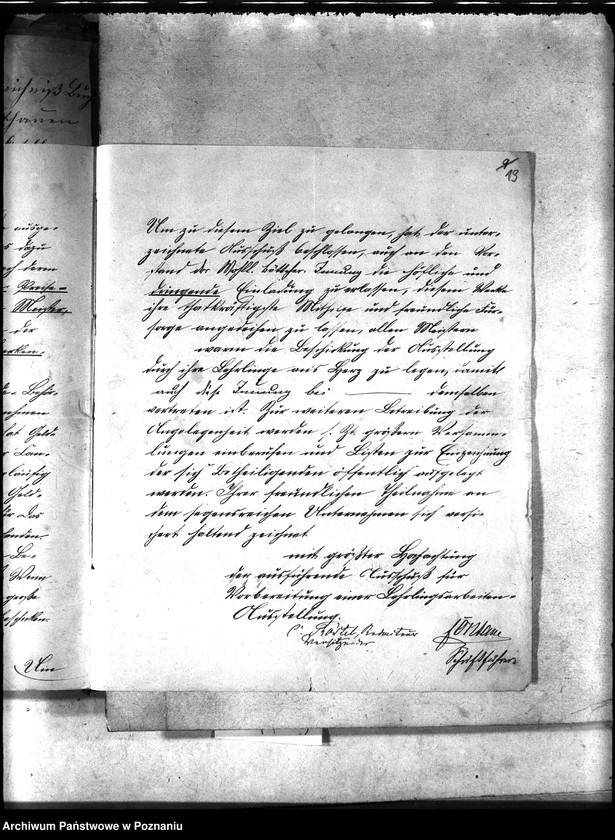 13
Um zu diesem Ziel zu gelangen, hat der unter-
zeichnete Ausschuß beschlossen, auch an den Vor-
stand der Wohll. böttcher Innung die höfliche und
dringende Einladung zu erlassen, diesem Werke
ihre thatkräftigste Mithilfe und freundliche Für-
sorge angedeihen zu lassen, allen Meistern
warm die Beschickung der Ausstellung
durch ihre Lehrlinge ans Herz zu legen, damit
auch diese Innung bei derselben
vertreten ist. Zur weiteren Betreibung der
Angelegenheit werden s. Zt. größere Versamm-
lungen einberufen und Listen zur Einzeichnung
der sich Betheiligenden öffentlich ausgelegt
werden. Ihrer freundlichen Theilnahme an
dem segensreichen Unternehmen sich versi-
chert haltend zeichnet
mit größter Hochachtung
der ausführende Ausschuß für
Vorbereitung einer Lehrlingsarbeiten-
Ausstellung.
Redakteur
Vorsitzender
Fontane
Schriftführer
ausge-
dazu
Meister,
der
Geld-
Das
Wenn
große
Um
Archiwum Państwowe w Poznaniu